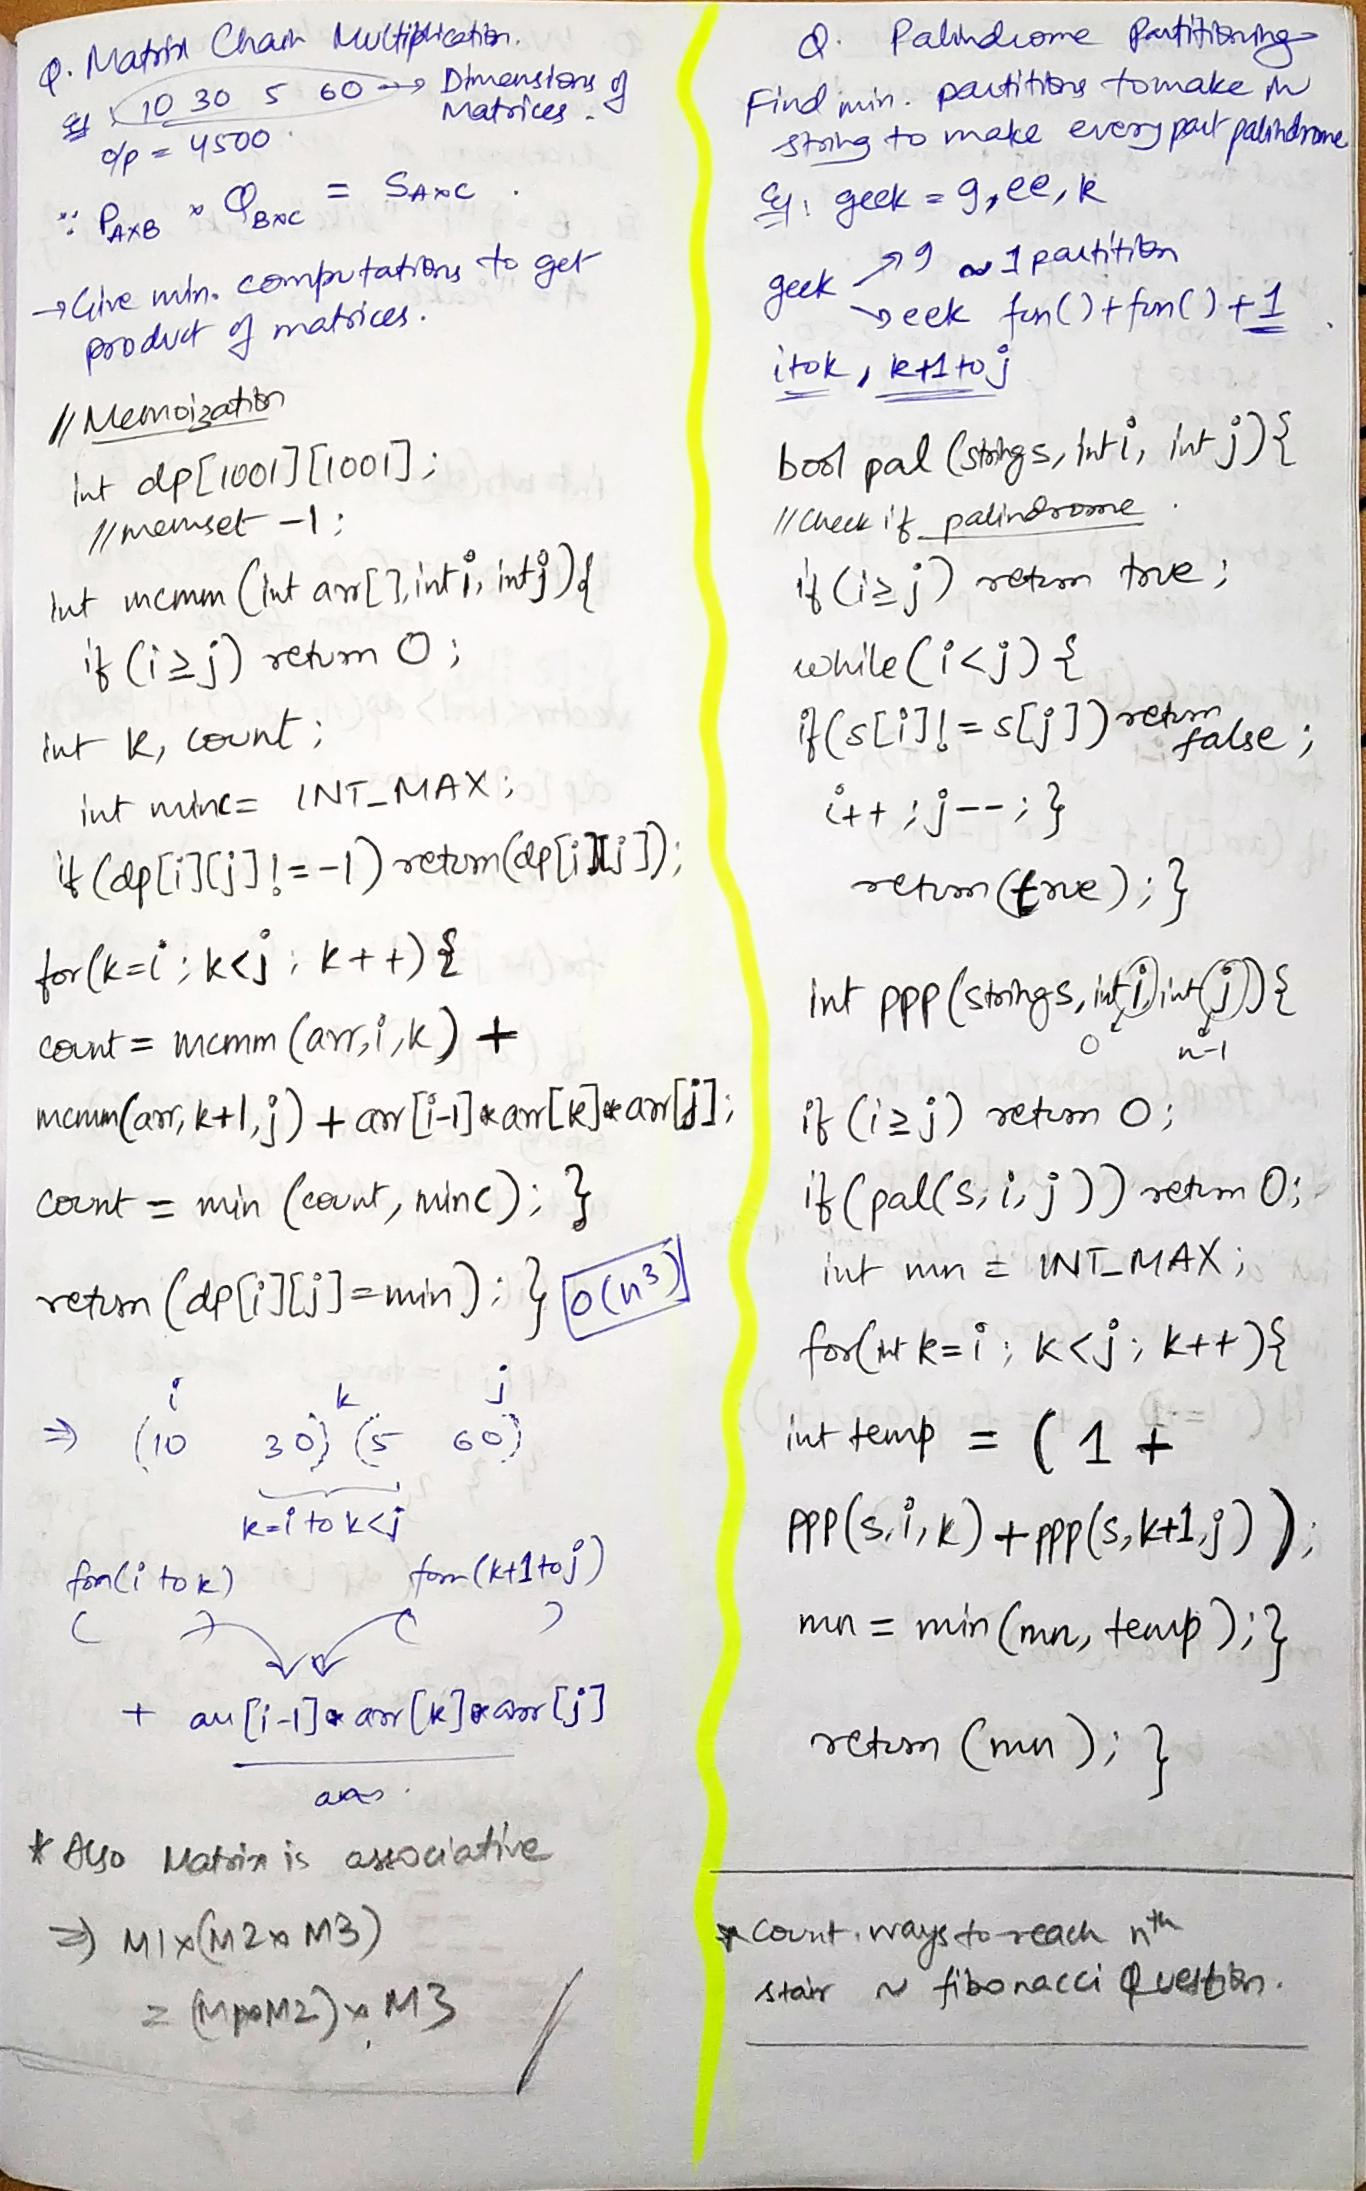 Q. Matrix Chain Multiplication.
Eg: 10 30 5 60 → Dimensions of
Matrices.
o/p = 4500
∵ P AxB x Q BxC = S AxC.
→ Give min. computations to get
product of matrices.
// Memoization
int dp[1001][1001];
//memset -1;
int mcmm (int arr[], int i, int j){
if (i ≥ j) return 0;
int k, count;
int minc = INT_MAX;
if (dp[i][j] != -1) return(dp[i][j]);
for(k=i; k<j; k++){
count = mcmm (arr,i,k) +
mcmm(arr, k+1, j) + arr[i-1]*arr[k]*arr[j];
count = min (count, minc); }
return (dp[i][j]=min); } O(n³)
i k j
⇒ (10 30) (5 60)
k=i to k<j
fon(i to k) fom(k+1 to j)
( ) ( )
+ arr[i-1]*arr[k]*arr[j]
ans.
* Also Matrix is associative
⇒ M1x(M2xM3)
= (M1xM2)xM3
Q. Palindrome Partitioning
Find min. partitions to make in
string to make every part palindrome
Eg: geek = g, ee, k
geek → g ~ 1 partition
→ eek fun()+fun()+1
i to k, k+1 to j
bool pal (string s, int i, int j){
// Check if palindrome.
if (i ≥ j) return true;
while (i<j) {
if(s[i] != s[j]) return
false;
i++; j--; }
return(true); }
int ppp(string s, int i, int j){
0 n-1
if (i ≥ j) return 0;
if (pal(s, i, j)) return 0;
int mn = INT_MAX;
for(int k=i; k<j; k++){
int temp = ( 1 +
ppp(s,i,k) + ppp(s,k+1,j) );
mn = min(mn, temp); }
return (mn); }
* Count ways to reach nth
stair ~ fibonacci Question.